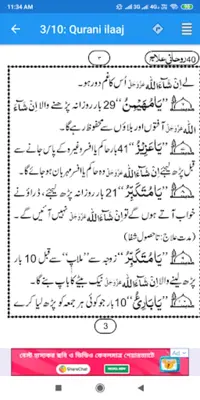 11:34 AM
3/10: Qurani ilaaj
40 روحانی علاج
۳
لے اِنْ شَآءَ اللہ عَزَّوَجَلَّ اُس کا غم دور ہو۔
"یَا مُھَیْمِنُ" 29 بار روزانہ پڑھنے والا اِنْ شَآءَ
اللہ عَزَّوَجَلَّ آفتوں اور بلاؤں سے محفوظ رہے گا۔
"یَا عَزِیْزُ" 41 بار حاکم یا افسر وغیرہ کے پاس جانے سے
قبل پڑھ لیجئے اِنْ شَآءَ اللہ عَزَّوَجَلَّ وہ حاکم یا افسر مہربان ہو جائے گا۔
"یَا مُتَکَبِّرُ" 21 بار روزانہ پڑھ لیجئے، ڈراؤنے
خواب آتے ہوں گے تو اِنْ شَآءَ اللہ عَزَّوَجَلَّ نہیں آئیں گے۔
(مدت علاج: تا حصول شفا)
"یَا مُتَکَبِّرُ" زوجہ سے "ملاپ" سے قبل 10 بار
پڑھ لینے والا اِنْ شَآءَ اللہ عَزَّوَجَلَّ نیک بیٹے کا باپ بنے گا۔
"یَا بَارِئُ" 10 بار جو کوئی ہر جمعہ کو پڑھ لیا کرے
3
Ad
ShareChat